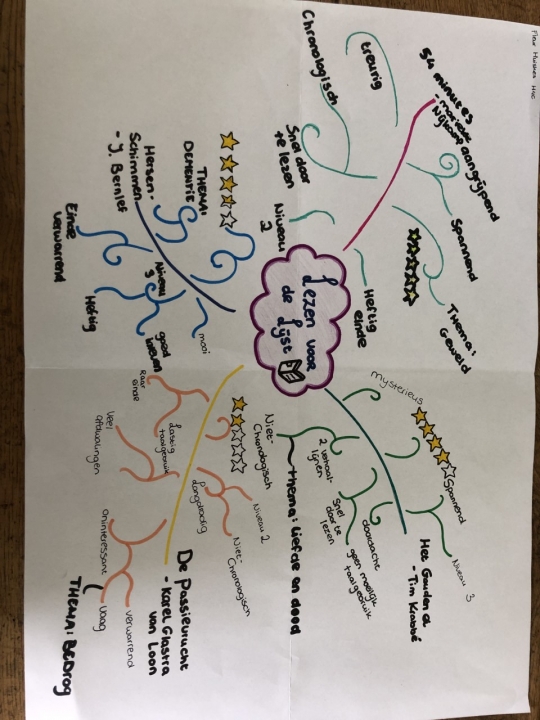 Lezen voor
de Lijst
54 minutes
- marieke
Nijkamp
aangrijpend
Spannend
Thema:
Geweld
Heftig
einde
treurig
Chronologisch
Snel door
te lezen
Niveau
2
Het Gouden ei
- Tim Krabbé
mysterieus
Spannend
Niveau 3
doordacht
geen moeilijk
taalgebruik
Snel
door te
lezen
2 verhaal-
lijnen
Niet-
Chronologisch
thema: liefde en dood
De Passievrucht
- Karel Glastra
van Loon
Niveau 2
Niet-
Chronologisch
Langdradig
Lastig
taalgebruik
Raar
einde
Veel
afdwalingen
oninteressant
vaag
verwarrend
THEMA: BEDROG
Hersen-
Schimmen
- J. Bernlef
THEMA:
DEMENTIE
mooi
Niveau
3
goed
Heftig
Einde
verwarrend